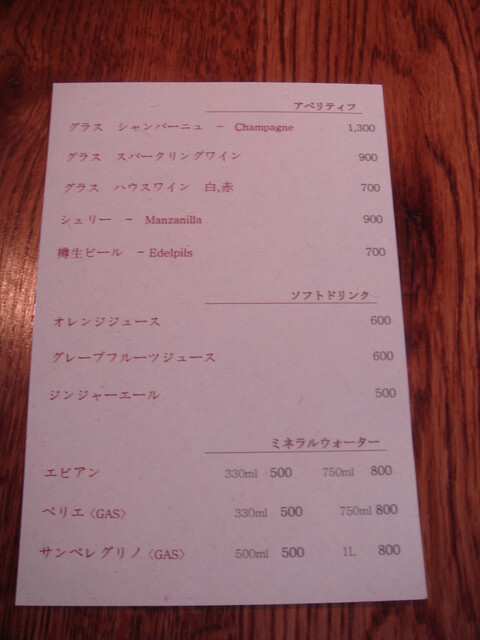 アペリティフ
グラス　シャンパーニュ　－　Champagne　1,300
グラス　スパークリングワイン　900
グラス　ハウスワイン　白,赤　700
シェリー　－　Manzanilla　900
樽生ビール　－Edelpils　700
ソフトドリンク
オレンジジュース　600
グレープフルーツジュース　600
ジンジャーエール　500
ミネラルウォーター
エビアン　330ml　500　750ml　800
ペリエ〈GAS〉　330ml　500　750ml 800
サンペレグリノ〈GAS〉　500ml　500　1L　800